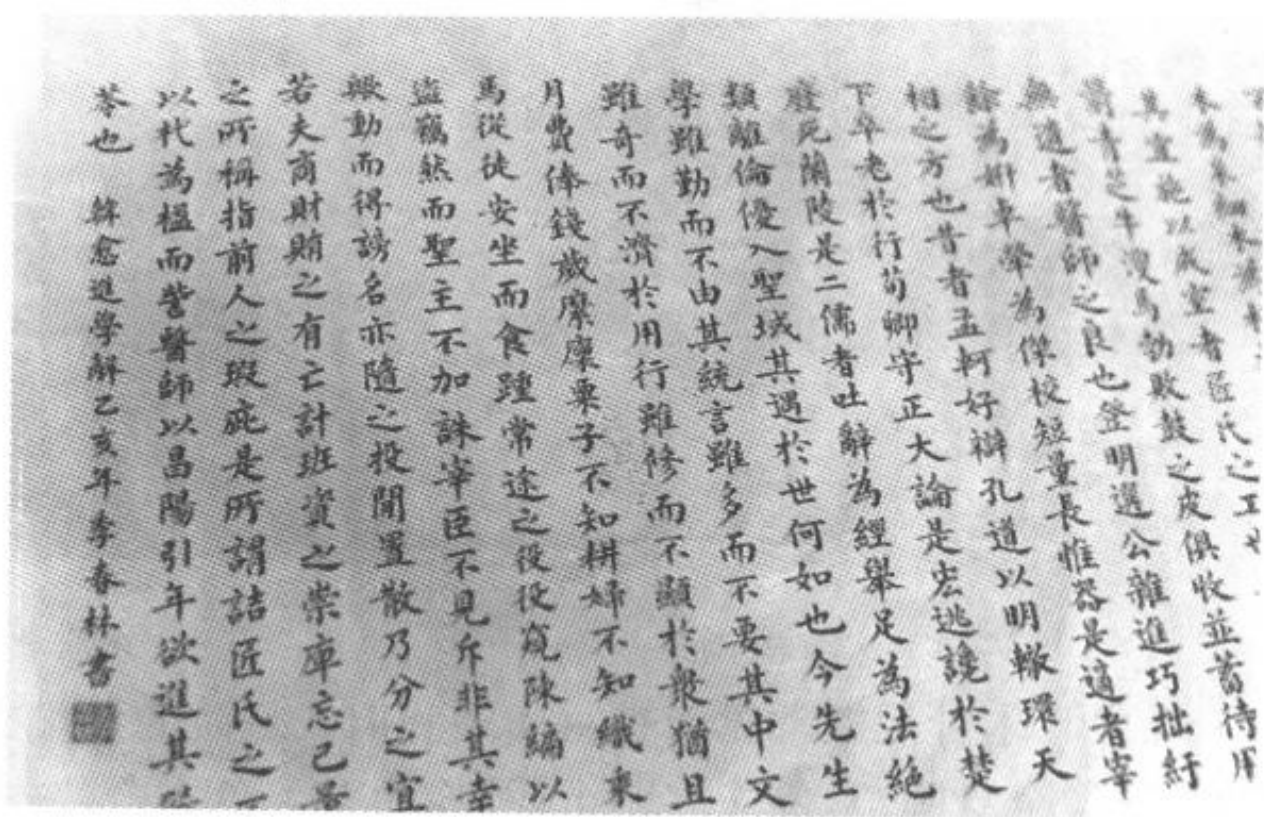 木為杗細木為桷
其宜施以成室者匠氏之工也
箭青芝牛溲馬勃敗鼓之皮俱收並蓄待用
無遺者醫師之良也登明選公雜進巧拙紆
餘為妍卓犖為傑校短量長惟器是適者宰
相之方也昔者孟軻好辯孔道以明轍環天
下卒老於行荀卿守正大論是宏逃讒於楚
廢死蘭陵是二儒者吐辭為經舉足為法絕
類離倫優入聖域其遇於世何如也今先生
學雖勤而不由其統言雖多而不要其中文
雖奇而不濟於用行雖修而不顯於衆猶且
月費俸錢歲糜廩粟子不知耕婦不知織乘
馬從徒安坐而食踵常途之役役窺陳編以
盜竊然而聖主不加誅宰臣不見斥非其幸
歟動而得謗名亦隨之投閒置散乃分之宜
若夫商財賄之有亡計班資之崇庳忘己量
之所稱指前人之瑕疵是所謂詰匠氏之不
以杙為楹而訾醫師以昌陽引年欲進其豨
苓也 韓愈進學解乙亥年李春林書